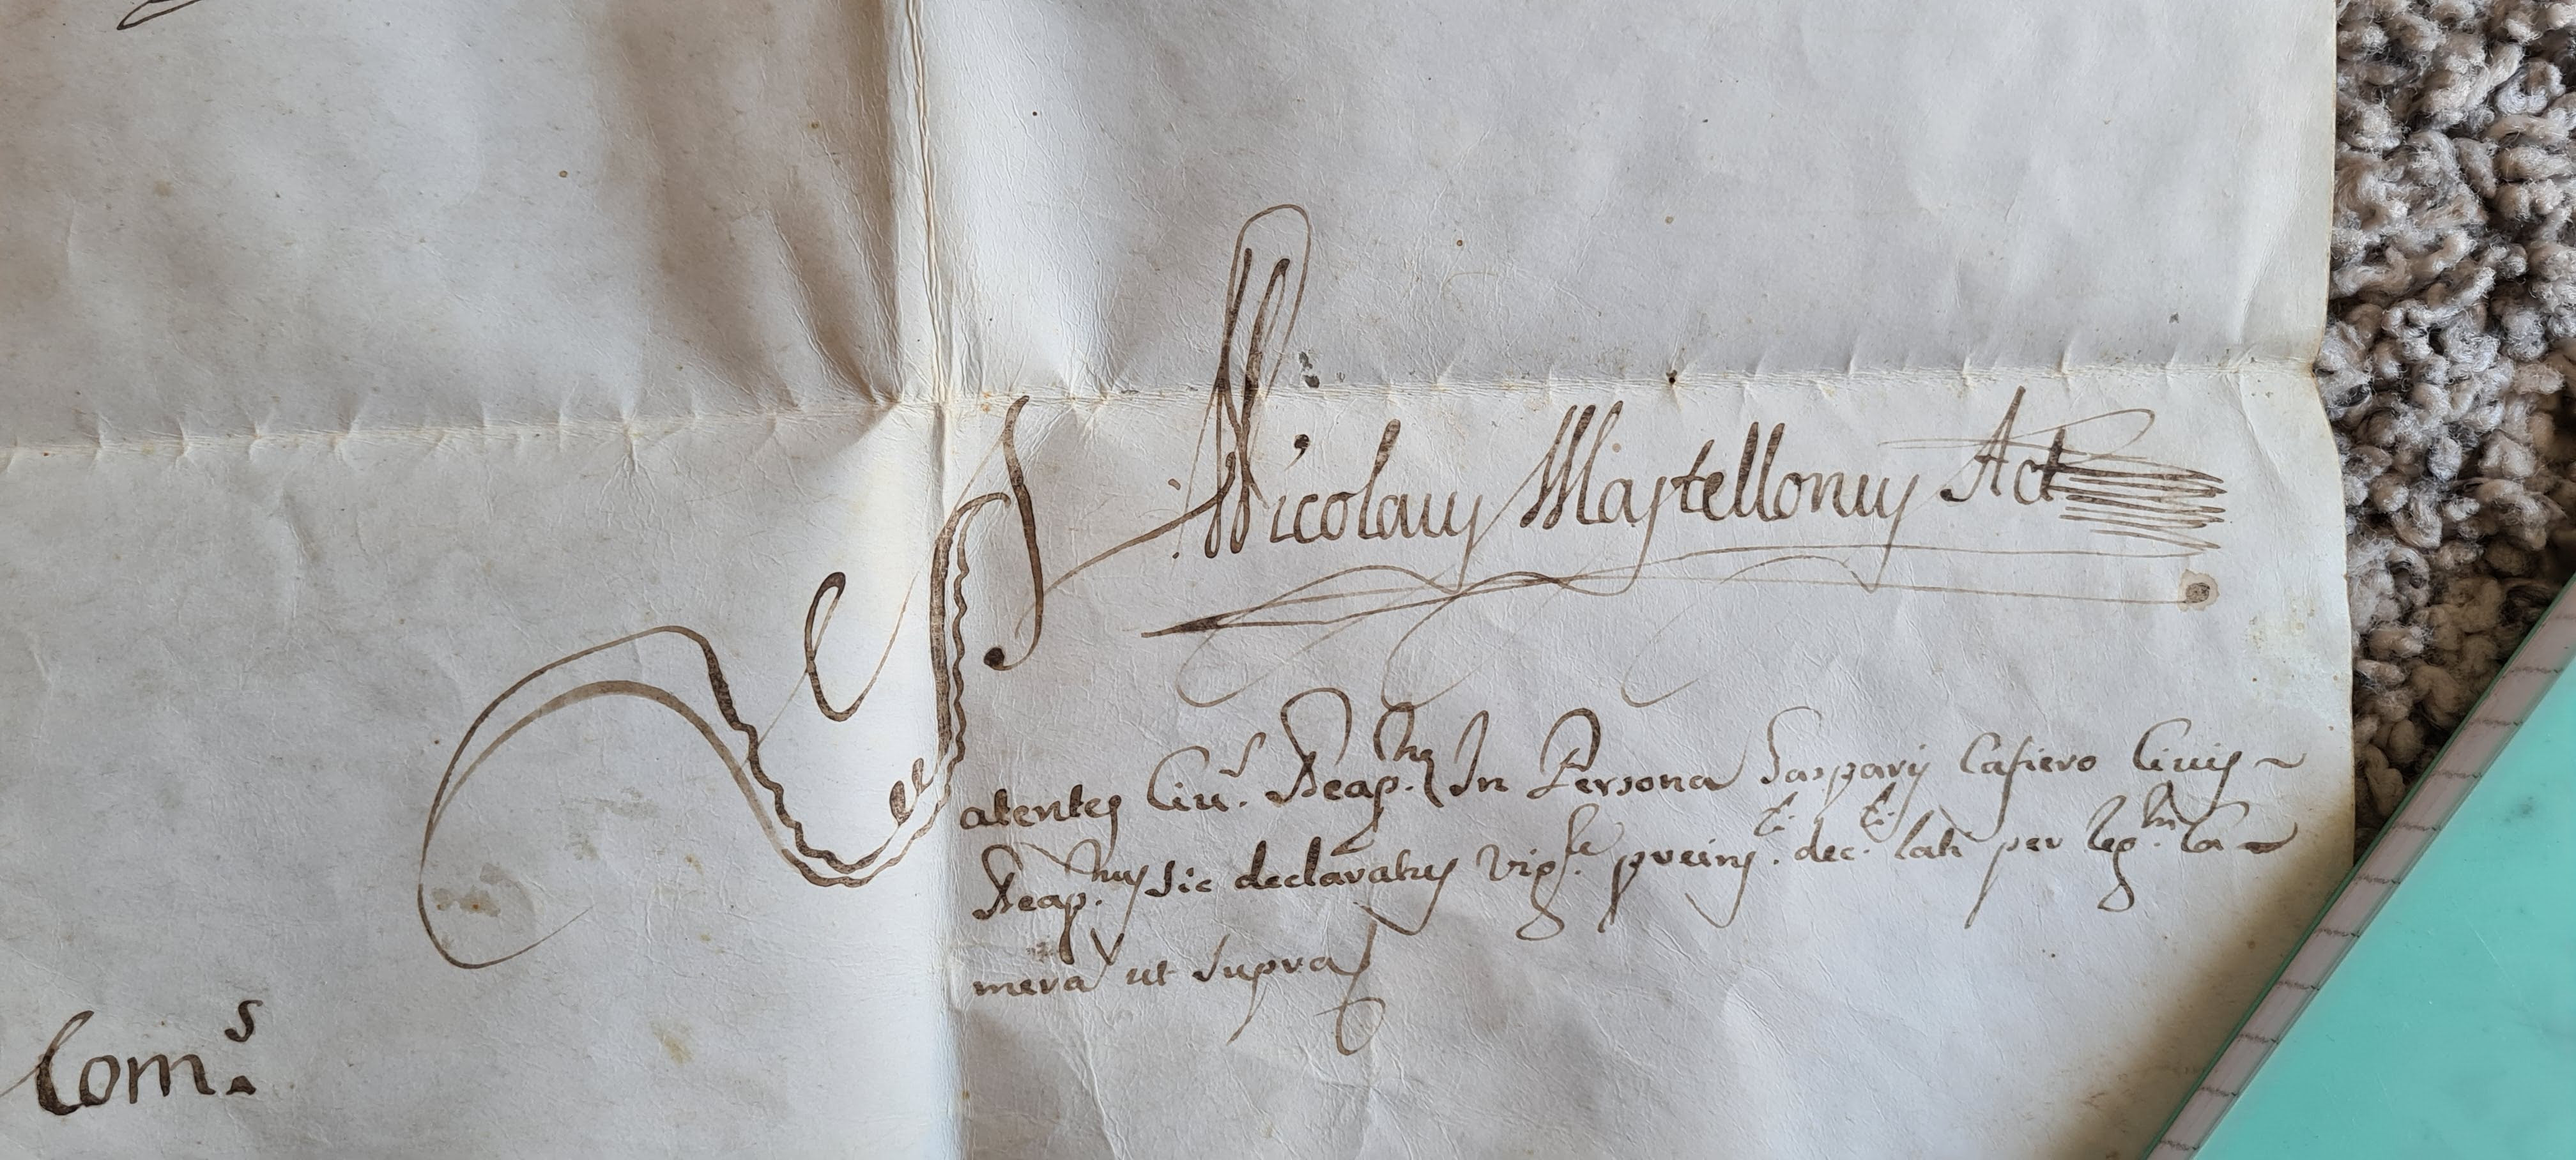 Nicolaus Mastellonus Act
Patentes Civ.s Neap.nę In Persona Gasparis Cafiero Civis
Neap.nus sic declaratus vig.re preins.ti dec.ti lati per Reg.m Ca-
mera ut supra
Com.s